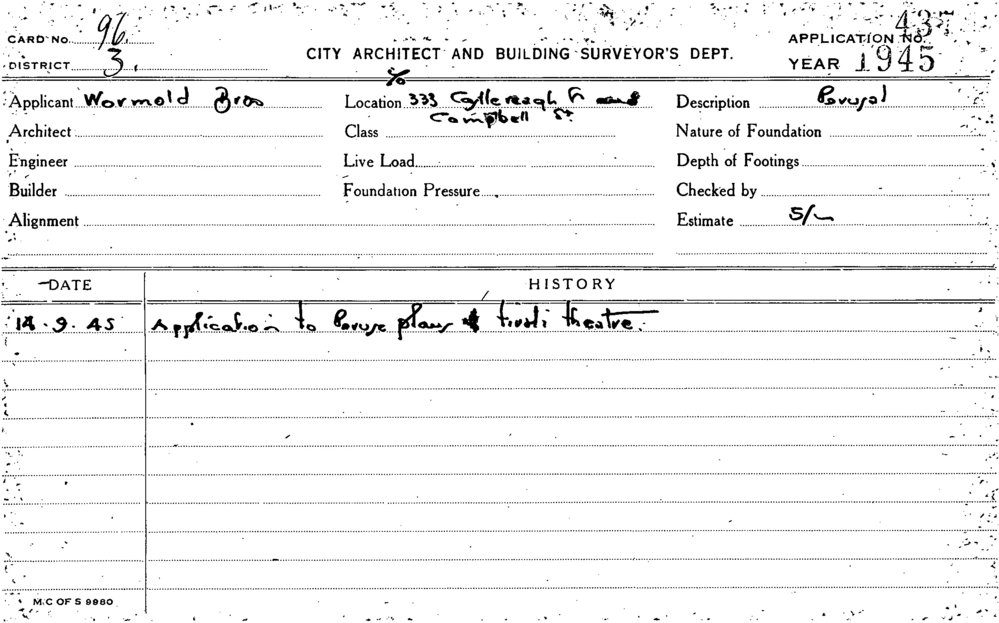 CARD NO. 96
DISTRICT 3.
CITY ARCHITECT AND BUILDING SURVEYOR'S DEPT.
APPLICATION NO. 437
YEAR 1945
Applicant Wormold Bros
Location 333 Castlereagh St and
Campbell St.
Description Perusal
Architect
Class
Nature of Foundation
Engineer
Live Load
Depth of Footings
Builder
Foundation Pressure
Checked by
Alignment
Estimate 5/-
DATE
HISTORY
14.9.45 Application to Peruse plans tivoli theatre.
M.C OF S 9980